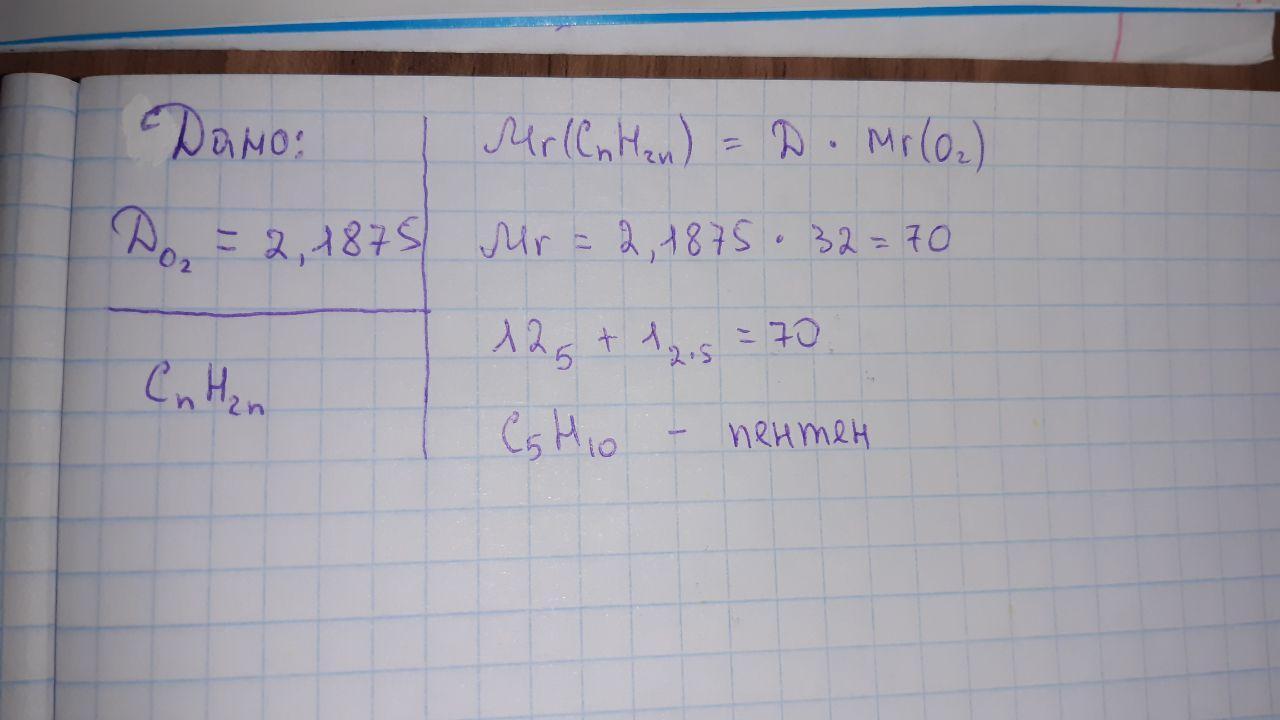 Дано:
D_O₂ = 2,1875
CₙH₂ₙ
Mr(CₙH₂ₙ) = D · Mr(O₂)
Mr = 2,1875 · 32 = 70
12₅ + 1₂.₅ = 70
C₅H₁₀ - пентен